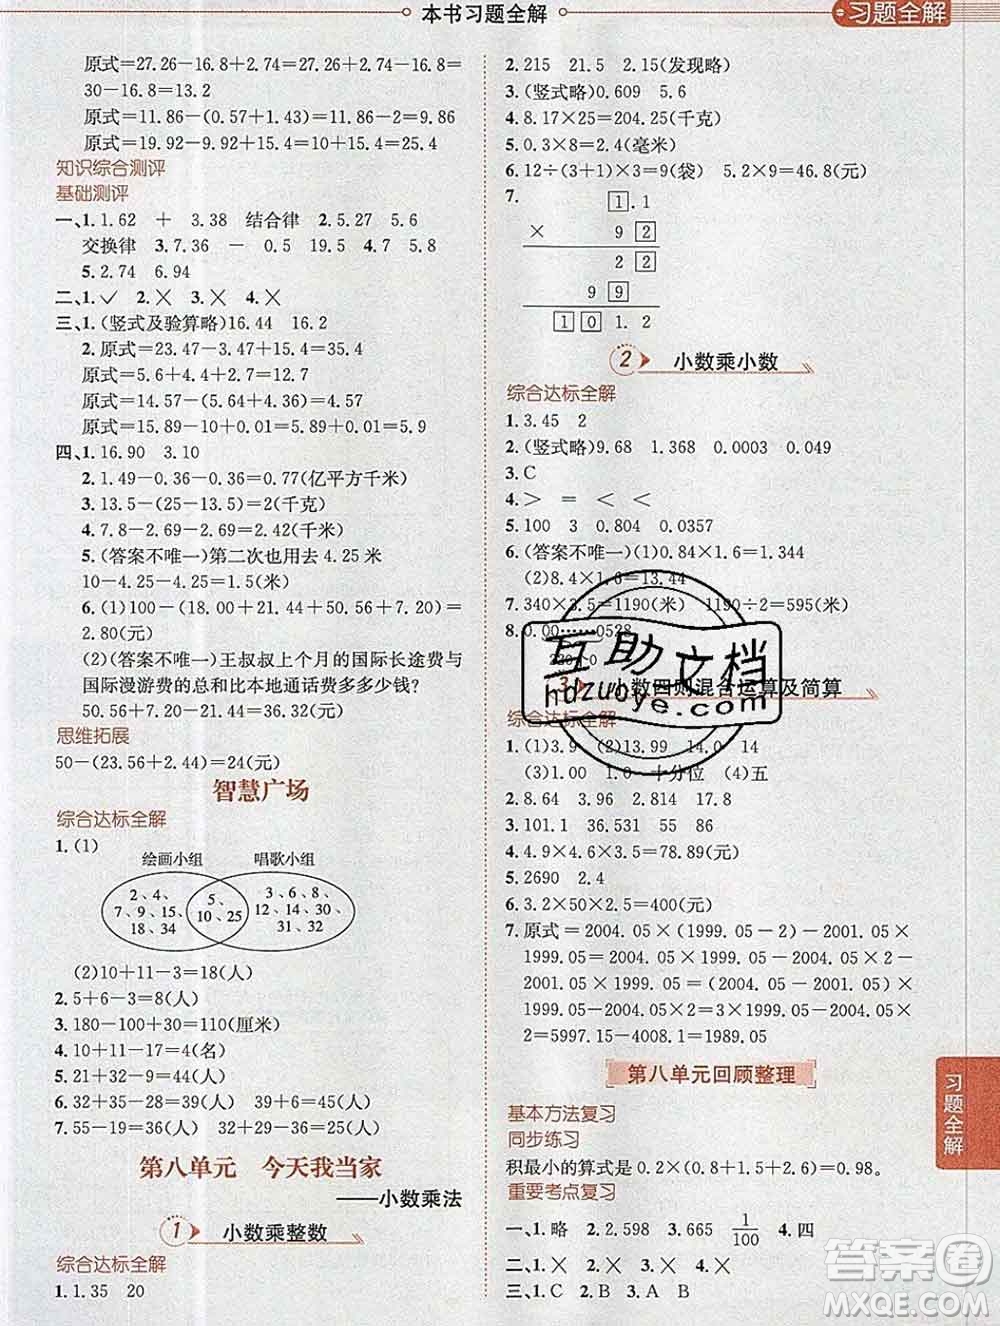 本书习题全解
习题全解
原式=27.26-16.8+2.74=27.26+2.74-16.8=
30-16.8=13.2
原式=11.86-(0.57+1.43)=11.86-2=9.86
原式=19.92-9.92+15.4=10+15.4=25.4
知识综合测评
基础测评
一、1.1.62 + 3.38 结合律 2.5.27 5.6
交换律 3.7.36 - 0.5 19.5 4.7 5.8
5.2.74 6.94
二、1.✓ 2.× 3.× 4.×
三、1.(竖式及验算略)16.44 16.2
2.原式=23.47-3.47+15.4=35.4
原式=5.6+4.4+2.7=12.7
原式=14.57-(5.64+4.36)=4.57
原式=15.89-(9.5+0.5)=5.89
四、1.16.90 3.10
2.1.49-0.36-0.36=0.77(亿平方千米)
3.13.5-(25-13.5)=2(千克)
4.7.8-2.69-2.69=2.42(千米)
5.(答案不唯一)第二次也用去 4.25 米
10-4.25-4.25=1.5(米)
6.(1)100-(18.00+21.60+36.00+21.60)=
2.80(元)
(2)(答案不唯一)王叔叔上个月的国际长途费与
国际漫游费的总和比本地通话费多多少钱?
50.56+7.20-21.44=36.32(元)
思维拓展
50-(23.56+2.44)=24(元)
智慧广场
综合达标全解
1.(1)
绘画小组 唱歌小组
2、4、
7、9、15、
18、34
5、
10、25
3、6、8、
12、14、30、
31、33
(2)10+11-3=18(人)
2.5+6-3=8(人)
3.180-100+30=110(厘米)
4.10+11-17=4(名)
5.17+21-34=4(人)
6.32+35-39=28(人) 39+6=45(人)
7.55-19=36(人) 32+29-36=25(人)
第八单元 今天我当家
——小数乘法
1 小数乘整数
综合达标全解
1.1.35 20
2.215 21.5 2.15(发现略)
3.(竖式略)0.609 5.6
4.8.17×25=204.25(千克)
5.0.3×8=2.4(毫米)
6.12÷(3+1)×3=9(袋) 5.2×9=46.8(元)
7.
1.1
× 9 2
2 2
9 9
1 0 1.2
2 小数乘小数
综合达标全解
1.3.45 2
2.(竖式略)9.68 1.368 0.0003 0.049
3.C
4.> = < <
5.100 3 0.804 0.0357
6.(答案不唯一)(1)0.84×1.6=1.344
(2)8.4×1.6=13.44
7.340×3.5=1190(米) 1190÷2=595(米)
8.0.00……0528
3 小数四则混合运算及简算
综合达标全解
1.(1)3.9 (2)13.99 14.0 14
(3)1.00 1.0 十分位 (4)五
2.8.64 3.96 2.817 9.4
3.101.1 36.531 55 86
4.4.9×4.6×3.5=78.89(元)
5.2690 2.4
6.3.2×50×2.5=400(元)
7.原式=2004.05×(1999.05-2)-2001.05×
1999.05=2004.05×1999.05-2004.05×2-
2001.05×1999.05=(2004.05-2001.05)×
1999.05-2004.05×2=3×1999.05-2004.05×
2=5997.15-4008.1=1989.05
第八单元回顾整理
基本方法复习
同步练习
积最小的算式是 0.2×(0.8+1.5+2.6)=0.98。
重要考点复习
一、1.略 2.2.598 3.665 1/100 4.四
二、1.× 2.× 3.× 4.× 5.×
三、1.C 2.B 3.A B
习题全解
互助文档
hdzuoye.com
答案圈
MXQE.COM